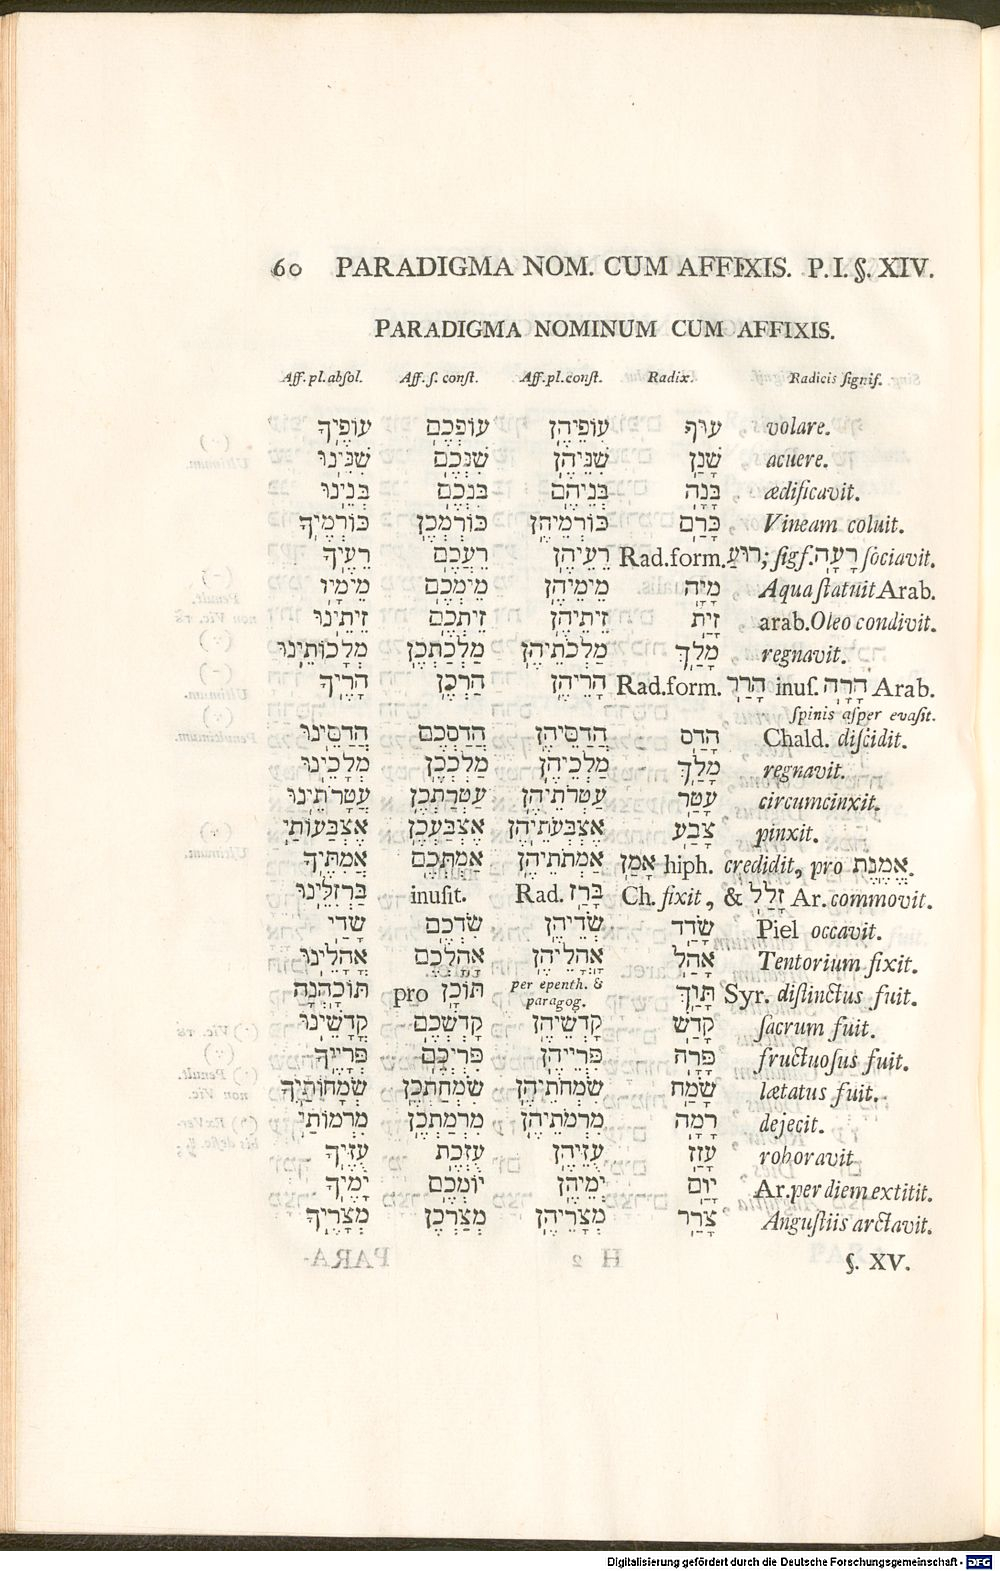 60 PARADIGMA NOM. CUM AFFIXIS. P. I. §. XIV.
PARADIGMA NOMINUM CUM AFFIXIS.
Aff. pl. absol. Aff. s. const. Aff. pl. const. Radix. Radicis signif.
עוֹפֶיךָ עוֹפְכֶם עוֹפֵיהֶן עוּף volare.
שִׁנֵּינוּ שִׁנְּכֶם שִׁנֵּיהֶן שָׁנַן acuere.
בְּנֵינוּ בִּנְכֶם בְּנֵיהֶם בָּנָה ædificavit.
כּוֹרְמֶיךָ כּוֹרְמְכֶן כּוֹרְמֵיהֶן כָּרַם Vineam coluit.
רֵעֶיךָ רֵעֲכֶם רֵעֵיהֶן Rad. form. רוּעַ; sigf. רָעָה sociavit.
מֵימָיו מֵימְכֶם מֵימֵיהֶן מָיָה Aqua statuit Arab.
זֵיתֵינוּ זֵיתְכֶם זֵיתֵיהֶן זָיַת arab. Oleo condivit.
מַלְכוֹתֵינוּ מַלְכַּתְכֶן מַלְכֹתֵיהֶן מָלַךְ regnavit.
הָרֶיךָ הַרְכֶן הָרֵיהֶן Rad. form. הָרַר inus. הָרָה Arab.
spinis asper evasit.
הֲדַסֵּינוּ הֲדַסְכֶם הֲדַסֵּיהֶן הָדַס Chald. discidit.
מְלָכֵינוּ מַלְכְּכֶן מַלְכֵיהֶן מָלַךְ regnavit.
עֲטָרֹתֵינוּ עֲטַרְתְּכֶן עַטְרֹתֵיהֶן עָטַר circumcinxit.
אֶצְבְּעוֹתַי אֶצְבַּעֲכֶן אֶצְבְּעֹתֵיהֶן צָבַע pinxit.
אֲמִתֶּיךָ אֲמִתְּכֶם אֲמִתֹּתֵיהֶן אָמַן hiph. credidit, pro אֱמֶנֶת.
בַּרְזִלֵּינוּ inusit. Rad. בָּרַז Ch. fixit, & זָלַל Ar. commovit.
שָׂדַי שַׂדְכֶם שְׂדֵיהֶן שָׂדַד Piel occavit.
אֹהָלֵינוּ אָהָלְכֶם אָהֳלֵיהֶן אָהַל Tentorium fixit.
תּוֹכָהְנָה pro תּוֹכָן per epenth. & paragog. תָּוַךְ Syr. distinctus fuit.
קֳדָשֵׁינוּ קָדְשְׁכֶם קָדְשֵׁיהֶן קָדַשׁ sacrum fuit.
פְּרָיֶיךָ פִּרְיְכֶם פִּרְיֵיהֶן פָּרָה fructuosus fuit.
שִׂמְחוֹתֶיךָ שִׂמְחַתְכֶן שִׂמְחֹתֵיהֶן שָׂמַח lætatus fuit.
מִרְמוֹתַי מִרְמַתְכֶן מִרְמֹתֵיהֶן רָמָה dejecit.
עֻזֶּיךָ עֻזְּכֶם עֻזֵּיהֶן עָזַז roboravit
יָמֶיךָ יוֹמְכֶם יְמֵיהֶן יָוַם Ar. per diem extitit.
מְצָרֶיךָ מְצַרְכֶן מְצָרֵיהֶן צָרַר Angustiis arctavit.
§. XV.
Digitalisierung gefördert durch die Deutsche Forschungsgemeinschaft - DFG